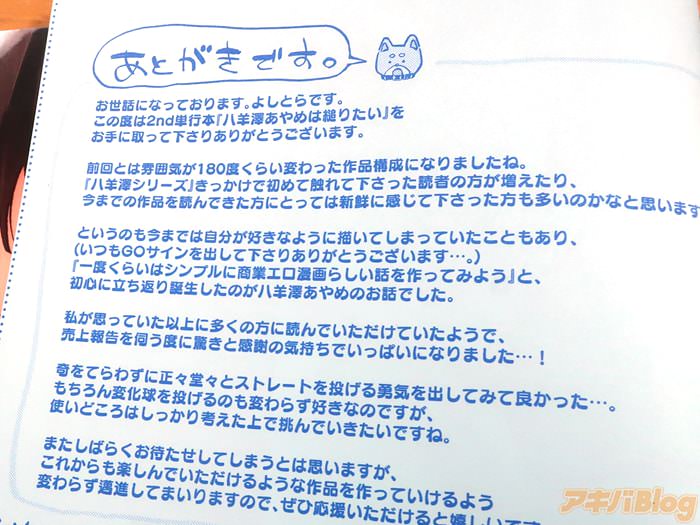 あとがきです。
お世話になっております。よしとらです。
この度は2nd単行本『八羊澤あやめは縋りたい』を
お手に取って下さりありがとうございます。
前回とは雰囲気が180度くらい変わった作品構成になりましたね。
『八羊澤シリーズ』きっかけで初めて触れて下さった読者の方が増えたり、
今までの作品を読んできた方にとっては新鮮に感じて下さった方も多いのかなと思います
というのも今までは自分が好きなように描いてしまっていたこともあり、
(いつもGOサインを出して下さりありがとうございます…。)
『一度くらいはシンプルに商業エロ漫画らしい話を作ってみよう』と、
初心に立ち返り誕生したのが八羊澤あやめのお話でした。
私が思っていた以上に多くの方に読んでいただけていたようで、
売上報告を伺う度に驚きと感謝の気持ちでいっぱいになりました…！
奇をてらわずに正々堂々とストレートを投げる勇気を出してみて良かった…。
もちろん変化球を投げるのも変わらず好きなのですが、
使いどころはしっかり考えた上で挑んでいきたいですね。
またしばらくお待たせしてしまうとは思いますが、
これからも楽しんでいただけるような作品を作っていけるよう
変わらず邁進してまいりますので、ぜひ応援いただけると嬉しいです
アキバBlog